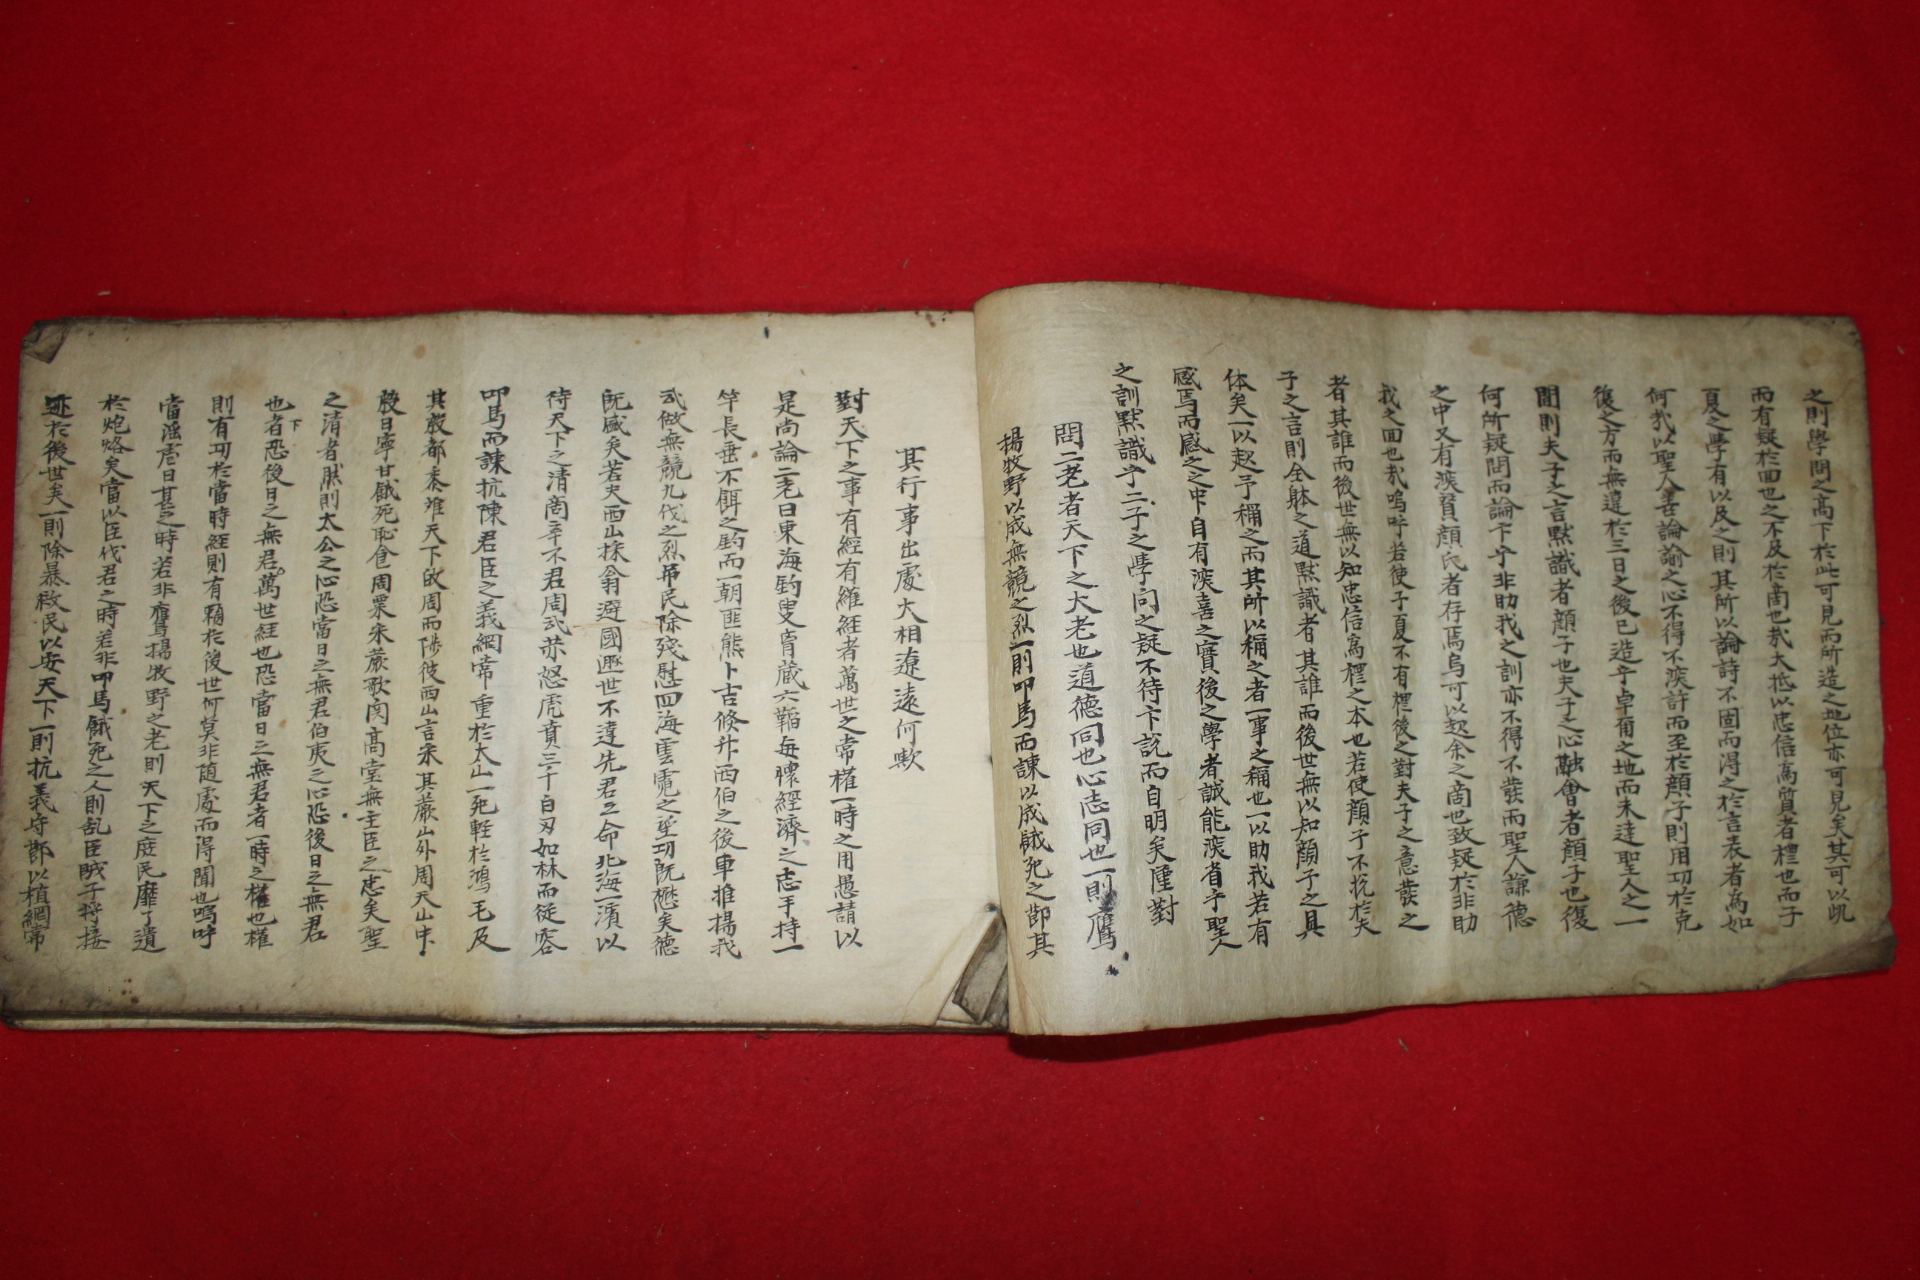 之則學問之高下於此可見而所造之地位亦可見矣其可以
而有疑於回也之不及於商也哉大抵以忠信高質者禮也而子
夏之學有以及之則其所以論詩不固而得之於言表者為如
何哉以聖人善論諭之心不得不深許而至於顔子則用功於克
復之方而無違於三月之後已造乎卓爾之地而未達聖人之一
間則夫子之言默識者顔子也夫子之心融會者顔子也復
何所疑問而論卞乎非助我之訓亦不得不發而聖人謙德
之中又有深賢顔氏者存焉烏可以起余之商也致疑於非助
我之回也哉嗚呼若使子夏不有禮後之對夫子之意發之
者其誰而後世無以知忠信為禮之本也若使顔子不悅於夫
子之言則全體之道默識者其誰而後世無以知顔子之具
体矣一以起予稱之而其所以稱之者一事之稱也一以助我若有
感焉而感之之中自有深喜之實後之學者誠能深者乎聖人
之訓默識乎二子之學問之疑不待卞說而自明矣謹對
問二老者天下之大老也道德同也心志同也一則鷹
揚牧野以成無競之烈一則叩馬而諫以成餓死之節其
其行事出處大相遼遠何歟
對天下之事有經有維經者萬世之常權一時之用愚請以
是尚論二老曰東海釣叟胷藏六韜每懷經濟之志手持一
竿長垂不餌之釣而一朝匪熊卜吉倏升西伯之後車推揚我
武做無競九伐之烈吊民除殘慰四海雲霓之望功既懋矣德
既盛矣若夫西山採翁避國遯世不違先君之命北海一濱以
待天下之清商辛不君周武恭怒虎賁三千白刃如林而從容
叩馬而諫抗陳君臣之義綱常重於太山一死輕於鴻毛及
其殷都黍離天下攸周而陟彼西山言采其薇山外周天山中
殷日寧甘餓死恥食周粟采薇歌闋高堂無主臣之忠矣聖
之清者然則太公之心恐當日之無君伯夷之心恐後日之無君
也者恐後日之無君萬世經也恐當日之無君者一時之權也權
下
則有功於當時經則有補於後世何莫非隨處而得聞也嗚呼
當淫虐日甚之時若非鷹揚牧野之老則天下之庶民靡了遺
於炮烙矣當以臣伐君之時若非叩馬餓死之人則乱臣賊子將接
迹於後世矣一則除暴救民以安天下一則抗義守節以植綱常